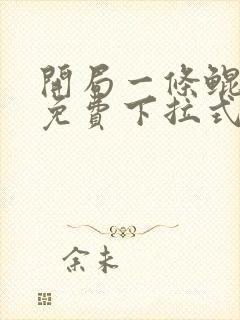 開局一條鯤
免費下拉式
余未